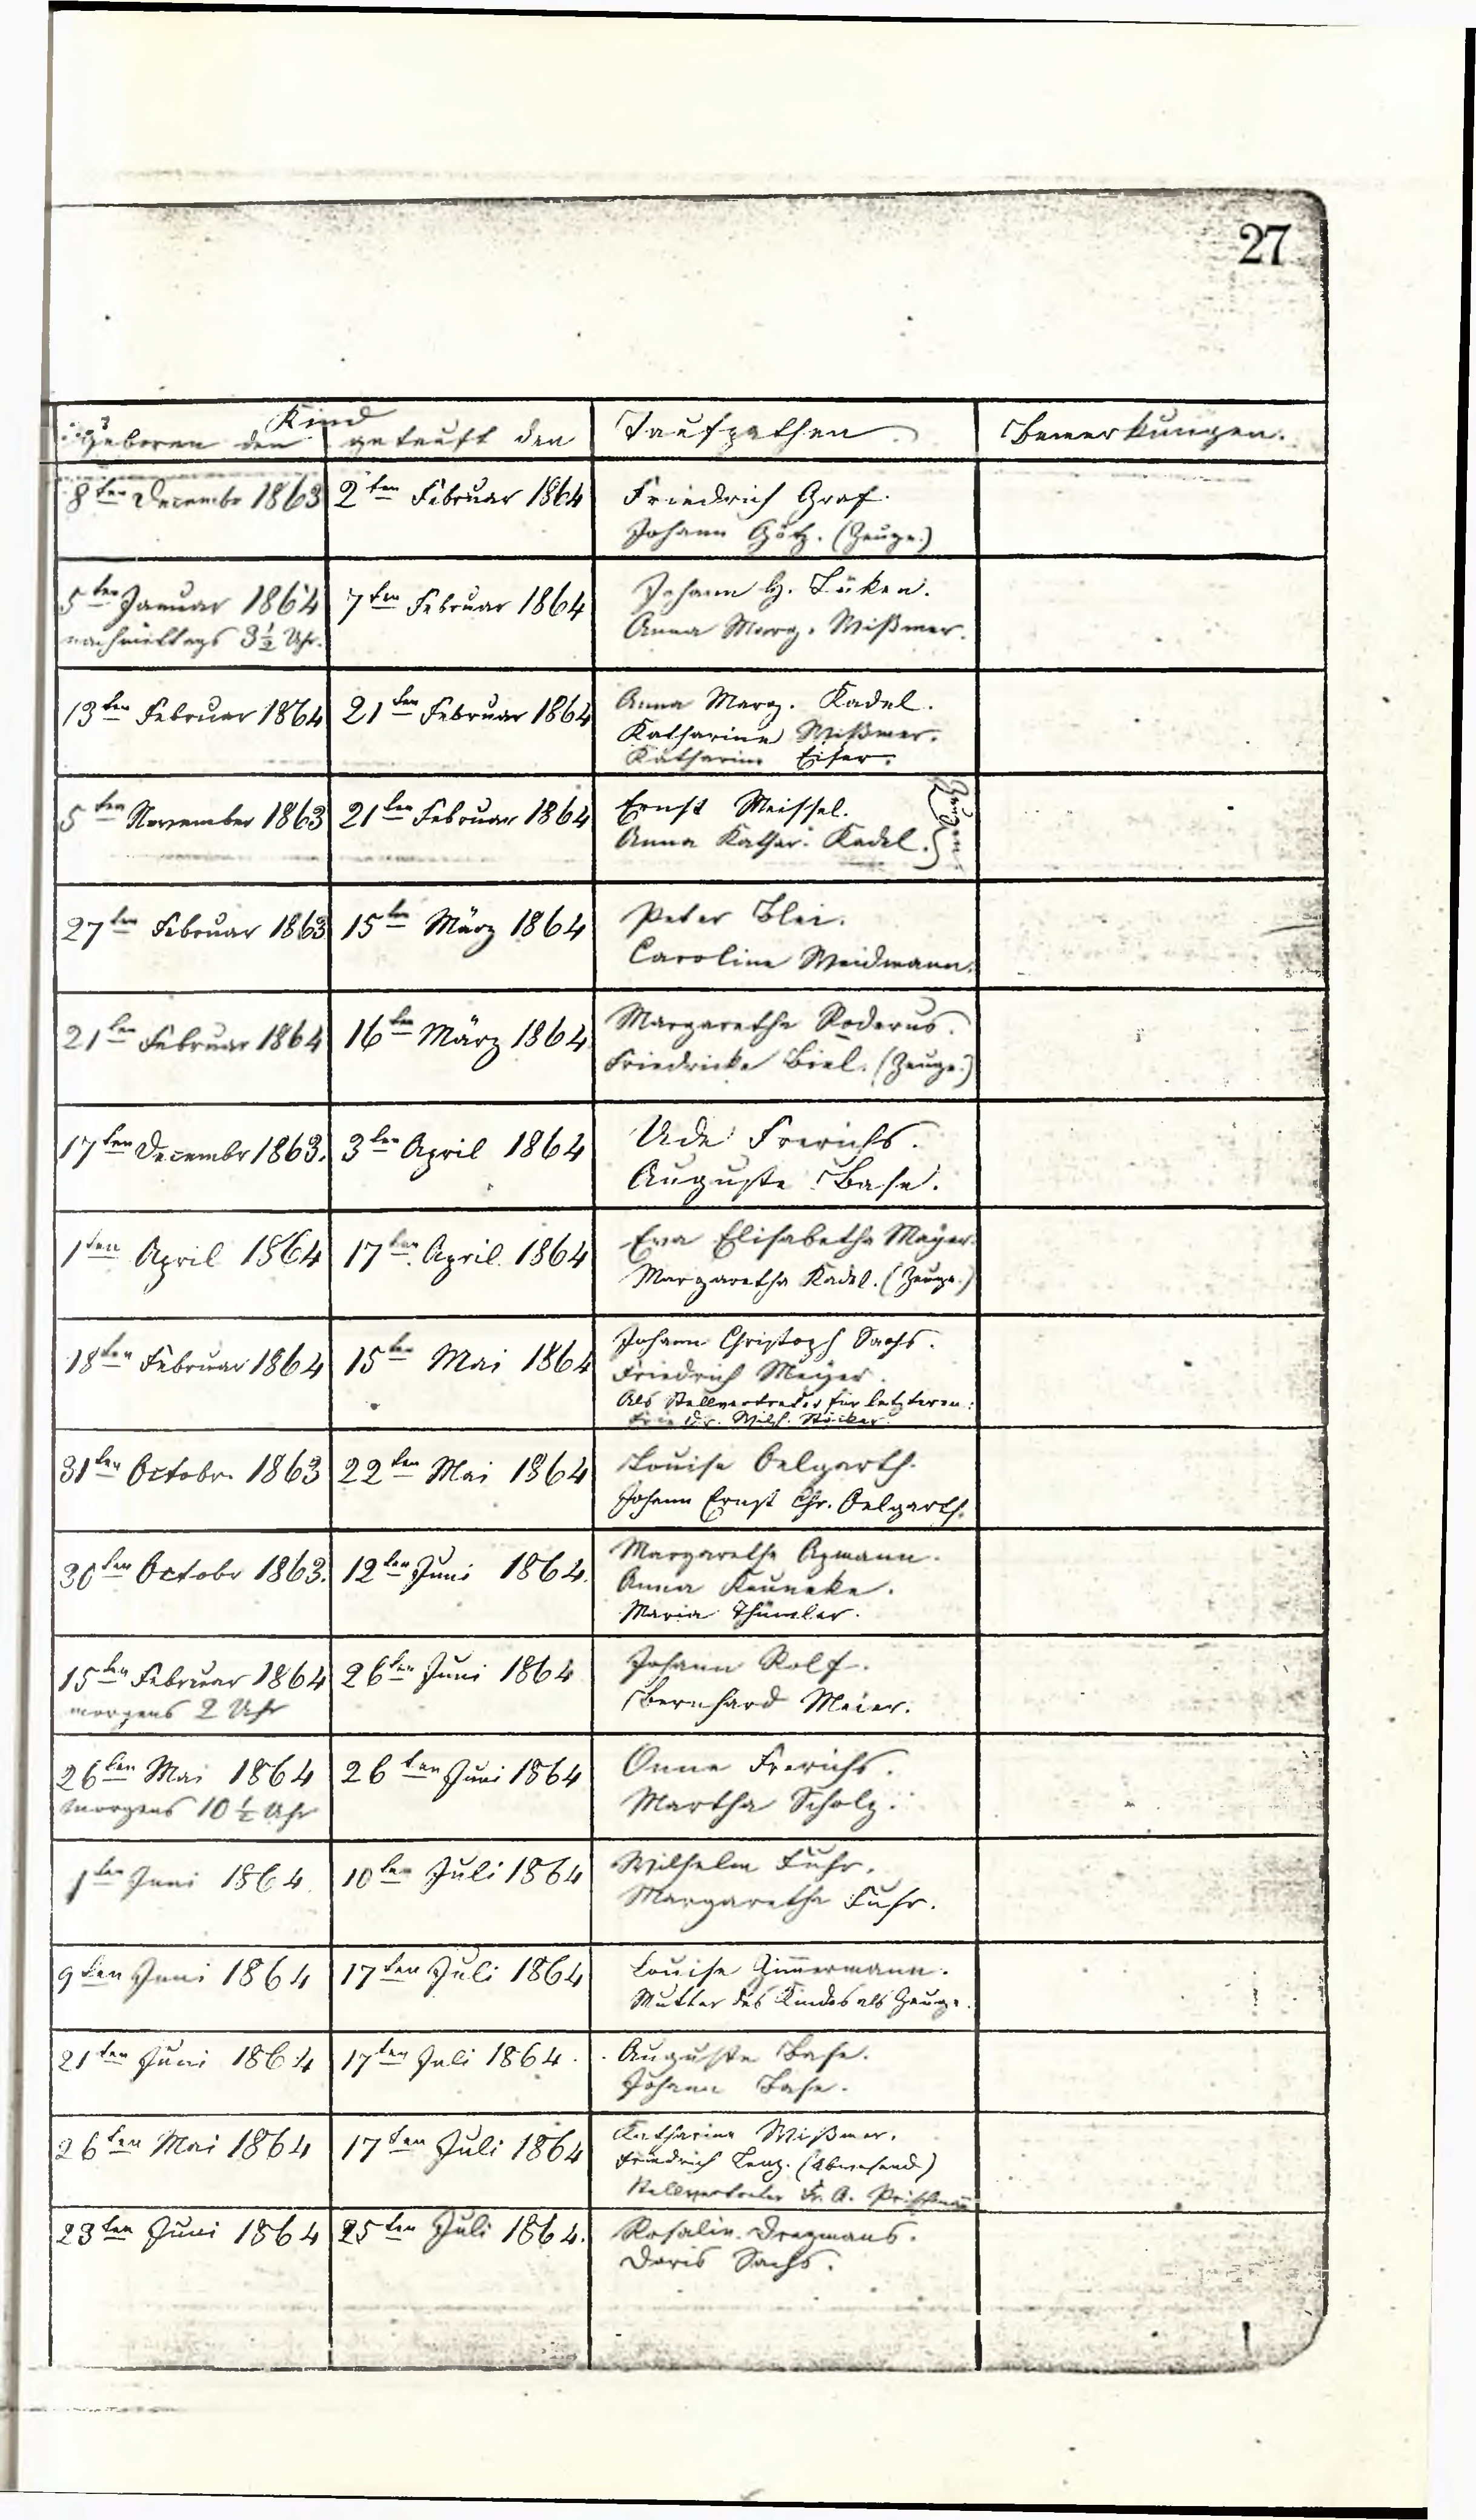 27
Kind
geboren den getauft den Taufpathen. Bemerkungen.
8ten Decembr 1863 2ten Februar 1864 Friedrich Graf.
Johann Götz. (Zeuge.)
5ten Januar 1864 7ten Februar 1864 Johann H. Lüken.
nachmittags 3½ Uhr. Anna Marg. Wißmer.
13ten Februar 1864 21ten Februar 1864 Anna Marg. Kadel.
Katharine Wißmer.
Katharine Eifer.
5ten November 1863 21ten Februar 1864 Ernst Meissel.
Anna Kathar. Kadel. } Zeugen
27ten Februar 1863 15ten März 1864 Peter Blei.
Caroline Weidmann.
21ten Februar 1864 16ten März 1864 Margarethe Roderus.
Friedricke Biel. (Zeuge.)
17ten Decembr 1863. 3ten April 1864 Ude Frerichs.
Auguste Base.
1ten April 1864 17ten April 1864 Eva Elisabetha Mayer.
Margaretha Kadel. (Zeuge.)
18ten Februar 1864 15ten Mai 1864 Johann Christoph Sachs.
Friedrich Meyer.
Als Stellvertreter für letzteren:
Wilh. Stöcker
31ten Octobr. 1863 22ten Mai 1864 Louise Oelgarth.
Johann Ernst Chr. Oelgarth.
30ten Octobr 1863. 12ten Juni 1864. Margarethe Azmann.
Anna Keuneke.
Maria Thümler.
15ten Februar 1864 26ten Juni 1864 Johann Rolf.
morgens 2 Uhr Bernhard Meier.
26ten Mai 1864 26ten Juni 1864 Onne Frerichs.
morgens 10½ Uhr Martha Scholz.
1ten Juni 1864. 10ten Juli 1864 Wilhelm Fuhr.
Margarethe Fuhr.
9ten Juni 1864 17ten Juli 1864 Louise Zimmermann.
Mutter des Kindes als Zeuge.
21ten Juni 1864 17ten Juli 1864. Auguste Base.
Johann Base.
26ten Mai 1864 17ten Juli 1864 Katharine Wißmer.
Friedrich Lenz. (Abwesend)
Stellvertreter Fr. A.
23ten Juni 1864 25ten Juli 1864. Rosalin. Dregmans.
Doris Sachs.